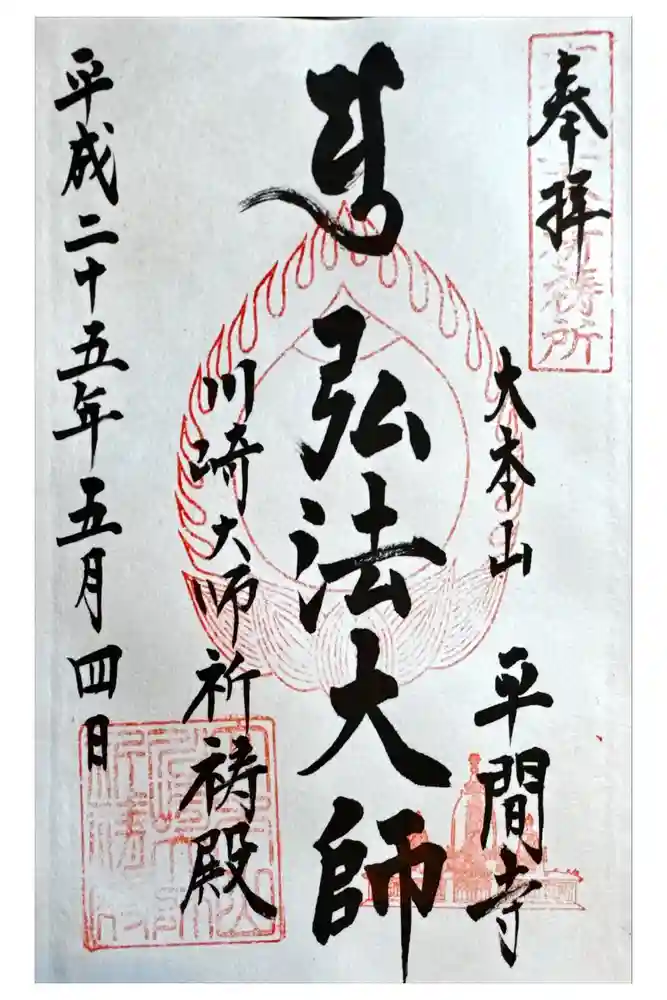 奉拝
大本山
平間寺
弘法大師
川崎大师祈祷殿
平成二十五年五月四日